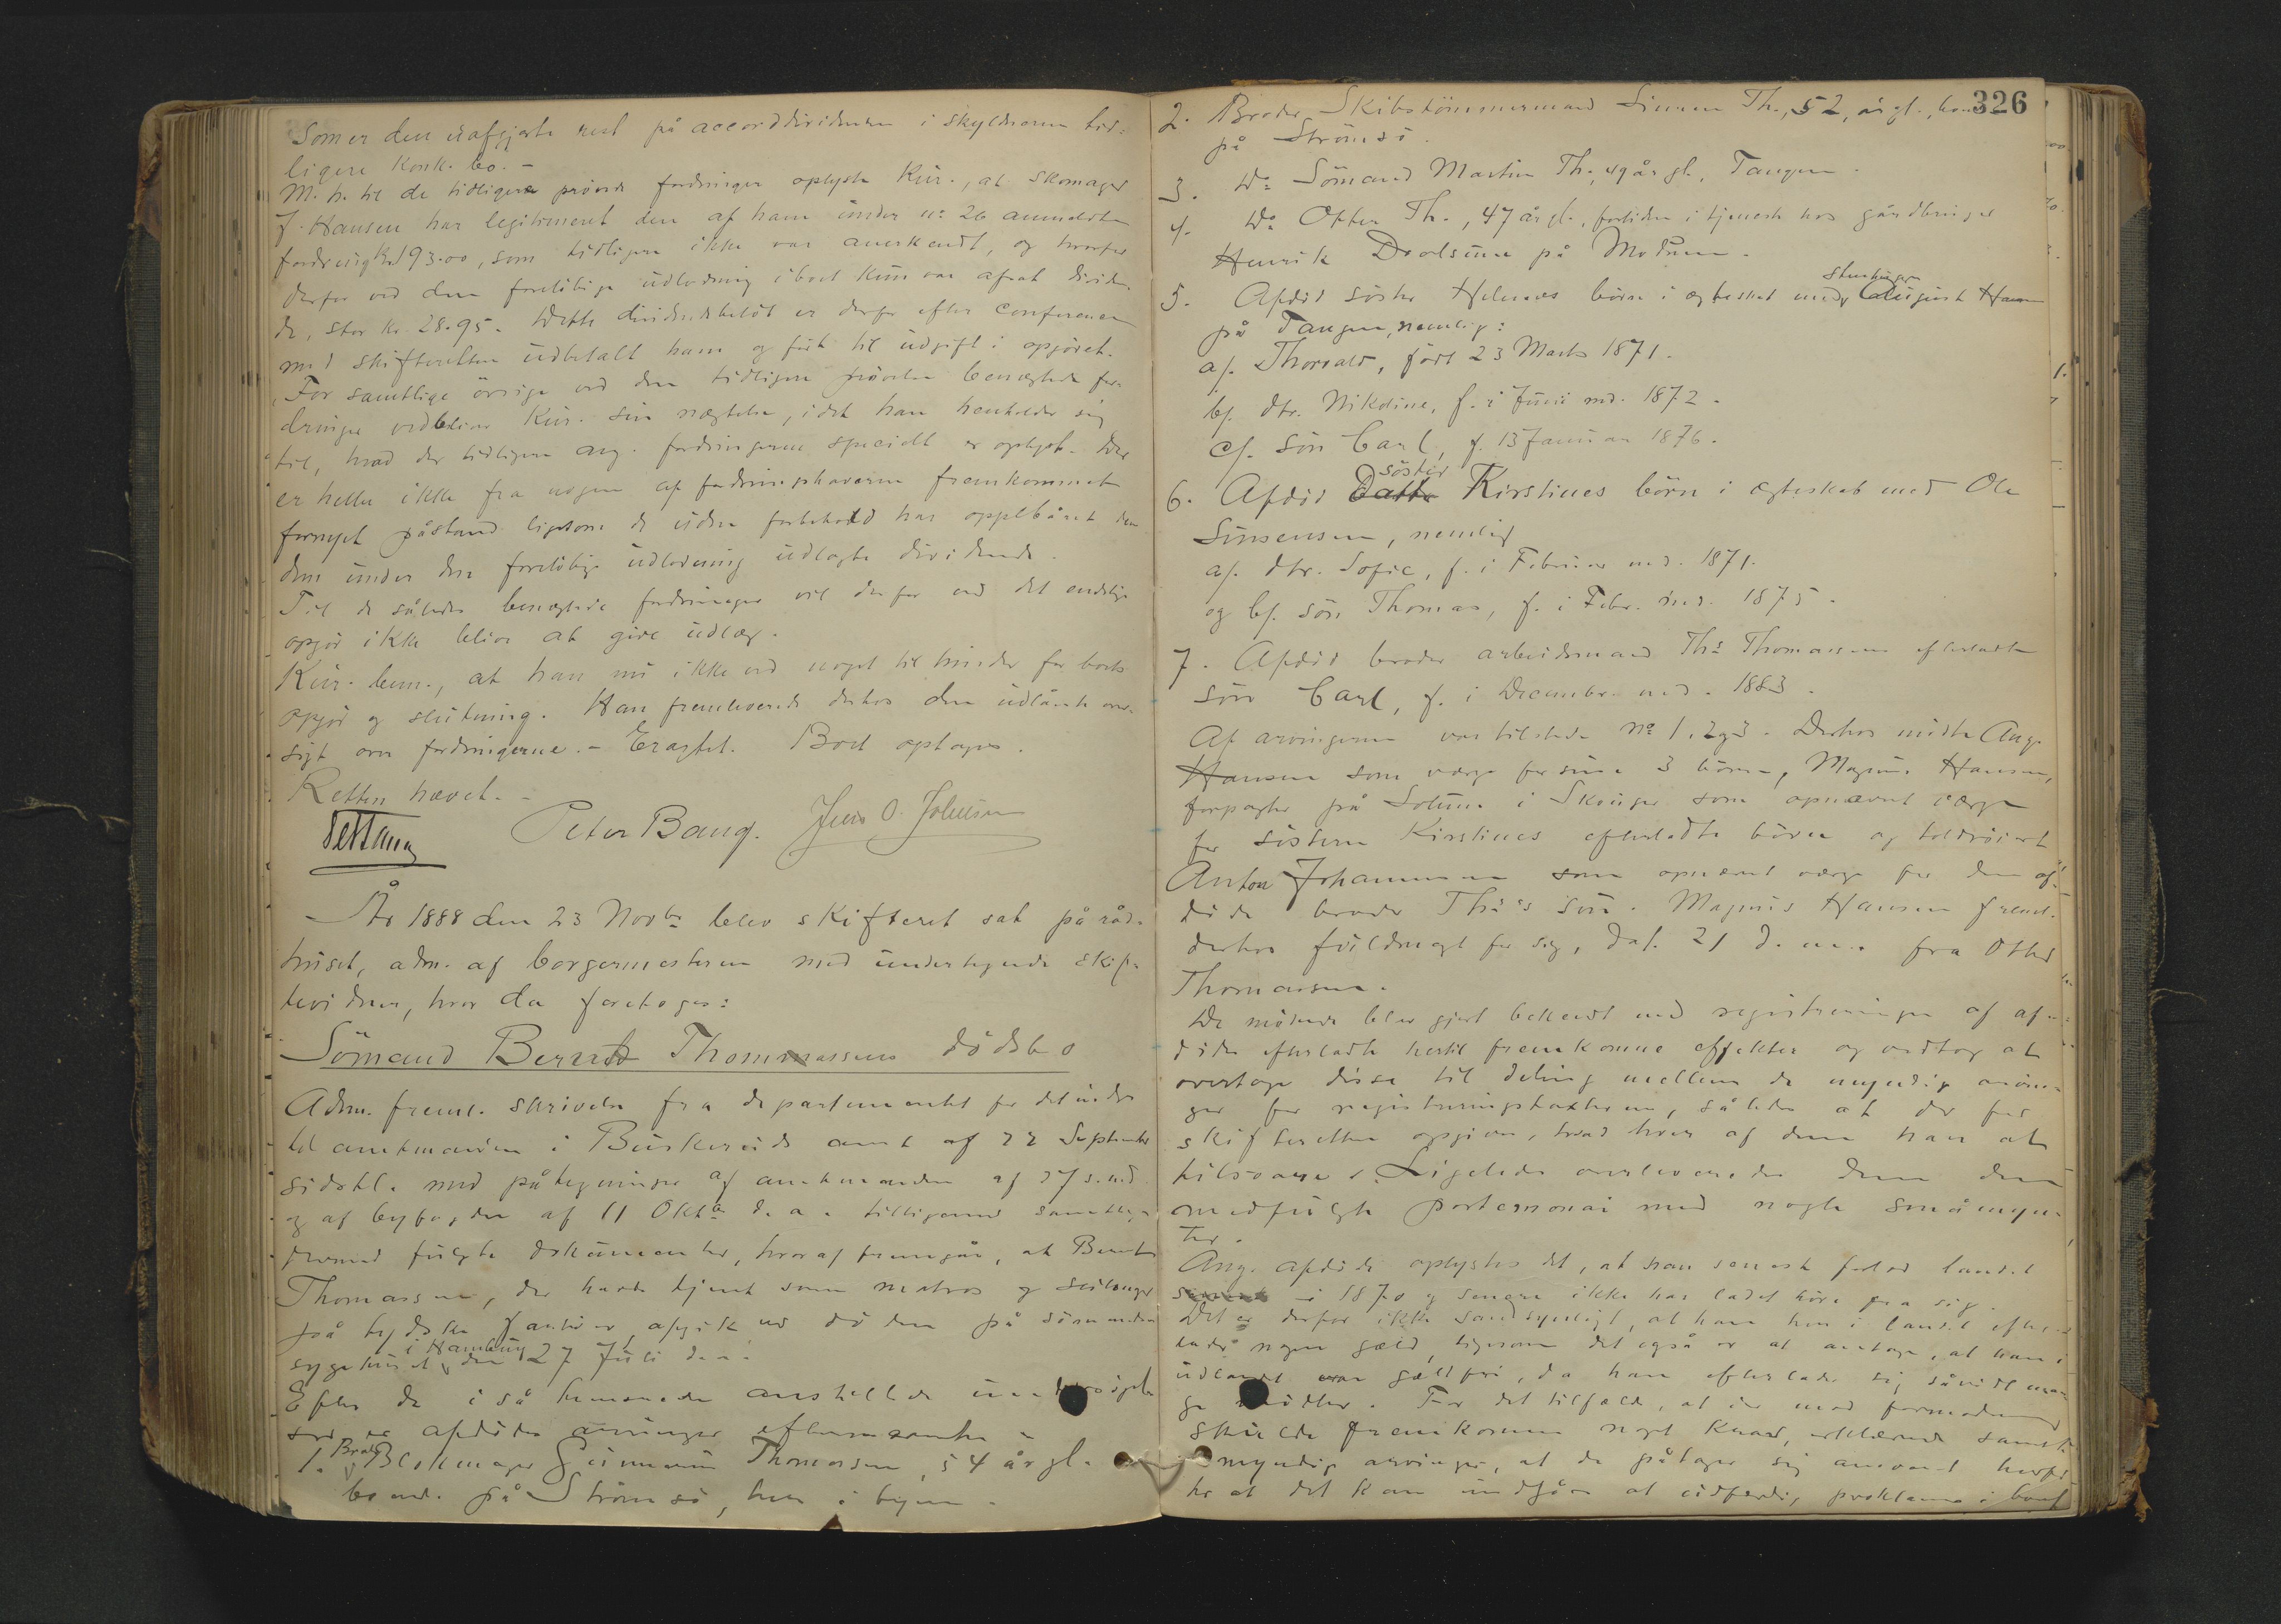 Som er den uafgjorte rest på accorddividenden i skyldneren tid-
ligere konk. bo. -
M. h. til de tidligere prövede fordringer oplyste Kur., at skomager
J. Hansen har legitimeret den af ham under no 26 anmeldte
fordring kr 193.00, som tidligere ikke var anerkendt, og hvorfor
derfor ved den forelöbige udlodning i boet kun var afsat dividen-
de, stor kr. 28.95. Dette dividendebelöb er derfor efter conference
med skifteretten udbetalt ham og fört til udgift i opgjöret.
For samtlige övrige ved den tidligere prövelse benægtede for-
dringer vedbliver Kur. sin nægtelse, idet han henholder sig
til, hvad der tidligere ang. fordringerne specielt er oplyst. Der
er heller ikke fra nogen af fordringshaverne fremkommet
fornyet påstand ligesom de uden forbehold har oppebåret den
dem under den forelöbige udlodning udlagte dividende.
Til de således benægtede fordringer vil derfor ved det endelige
opgjör ikke blive at give udlæg.
Kur. bem., at han nu ikke ved noget til hinder for boets
opgjör og slutning. Han fremleverede derhos den udlånte over-
sigt over fordringerne. - Extrajud. Boet optages.
Retten hævet. -
Peter Bang. Jens O. Johnsen
År 1888 den 23 Novbr blev skifteret sat på råd-
huset, adm. af borgermesteren med undertegnede skif-
tevidner, hvor da foretoges:
Sömand Bernt Thommassens dödsbo
Adm. freml. skrivelse fra departementet for det indre
til amtmanden i Buskeruds amt af 22 September
sidstl. med påtegninger af amtmanden af 27 s. md
og af byfogden af 11 Oktbr d. a. tilligemed samtlige
dermed fulgte dokumenter, hvoraf fremgår, at Bernt
Thomassen, der havde tjent som matros og
på tydske fartöier afgik ved döden på sömandssygehuset
i Hamburg den 27 Juli d. a.
Efter de i så henseende anstillede undersögelser
er afdödes arvinger eftternævnte:
1. Broder Blokmager Gunerius Thomassen, 54 år gl.
boende på Strömsö, her i byen.
326
2. Broder Skibstömmermand Simen Th., 52, år gl., boende
på Strömsö.
3. Do Sömand Martin Th., 49 år gl., Tangen.
4. Do Otter Th., 47 år gl., fortiden i tjeneste hos gårdbruger
Henrik Dvolsune på Modum.
5. Afdöd söster Helenes börn i ægteskab med August Hansen
på Tangen, nemlig:
a/. Thorvald, född 23 Marts 1871.
b/. dtr. Nikoline, f. i Juni md. 1872.
c/. sön Carl, f. 13 Januar 1876.
6. Afdöd söster Kirstines börn i ægteskab med Ole
Simensen, nemlig
a/. dtr. Sofie, f. i Februar md. 1871.
og b/. sön Thomas, f. i Febr. md. 1875.
7. Afdöd broder arbeidsmand Ths Thomassens efterladte
sön Carl, f. i Decembr. md. 1883.
Af arvingerne var tilstede No 1, 2 og 3. Derhos mödte Aug.
Hansen som værge for sine 3 börn, Magnus Hansen,
forpagter på Solum i Skouger som opnævnt værge
for sösteren Kirstines efterladte börn og toldröiert
Anton Johannesen som opnævnt værge for den af-
döde broder Ths's sön. Magnus Hansen freml.
derhos fuldmagt for sig, dat. 21 d. m. fra Otter
Thomassen.
De mödende blev gjort bekendt med registreringen af af-
dödes efterladte hertil fremkomne effekter og vedtog at
overtage disse til deling mellem de myndige arvin-
ger for registreringstaksterne, således at der for
skifteretten opgives, hvad hver af dem har at
tilsvare. Ligeledes overleveredes dem den
medfulgte portemonai med nogle småmyn-
ter.
Ang. afdöde oplystes det, at han senest forlod landet
i 1870 og senere ikke har ladet höre fra sig.
Det er derfor ikke sandsynligt, at han her i landet efter-
lader nogen gæld, ligesom det også er at antage, at han i
udlandet var gældfri, da han efterlader sig såvidt man-
ge midler. For det tilfælde, at der mod formodning
skulde fremkomme noget krav, erklærede samtl.
myndige arvinger, at de påtager sig ansvaret herfor
så at det kan undgåes at udfærdige proklama i boet